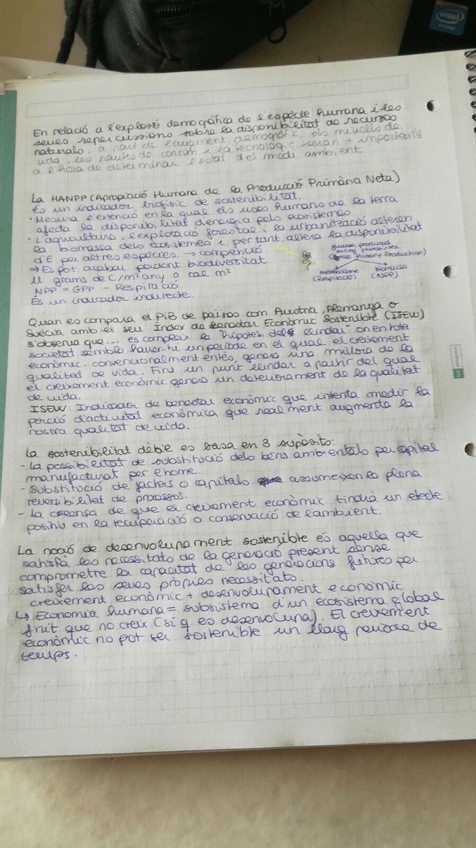 En relació a l'explosió demogràfica de l'espècie humana i les
seves repercussions sobre la disponibilitat de recursos
naturals. a part de l'augment demogràfic, els nivells de
vida, les pautes de consum i la tecnologia seran importants
a l'hora de determinar l'estat del medi ambient
La HANPP (Apropiació Humana de la Producció Primària Neta)
És un indicador biofísic de sostenibilitat.
· Mesura l'extenció en la qual els usos humans de la terra
afecta la disponibilitat d'energia pels ecosistemes
· L'agricultura, l'explotació forestal i la urbanització alteren
la biomassa dels ecosistemes i per tant, altera la disponibilitat
d'E per altres espècies. → competència
→ Es pot acabar perdent biodiversitat
g grams de C/m² any o cal m²
NPP = GPP - Respiració
És un indicador indirecte.
Biomass produced
during photosynthesis
(Gross Primary Production)
Metabolisme
(Respiració)
Biomassa
(NPP)
Quan es compara el PIB de països com Austria, Alemanya o
Suècia amb el seu Índex de Benestar Econòmic Sostenible (ISEW)
s'observa que... es compleix la hipòtesi del llindar on en tota
societat sembla haver-hi un període en el qual el creixement
econòmic, convencionalment entès, genera una millora de la
qualitat de vida. Fins un punt llindar a partir del qual
el creixement econòmic genera un deteriorament de la qualitat
de vida.
ISEW. Indicador de benestar econòmic que intenta medir la
porció d'activitat econòmica que realment augmenta la
nostra qualitat de vida.
La sostenibilitat dèbil es basa en 3 supòsits:
- La possibilitat de substitució dels béns ambientals per capital
manufacturat per l'home.
- Substitució de factors o capitals assumeixen la plena
reversibilitat de processos.
- La creença de que el creixement econòmic tindrà un efecte
positiu en la recuperació o conservació de l'ambient.
La noció de desenvolupament sostenible és aquella que
satisfà les necessitats de la generació present sense
comprometre la capacitat de les generacions futures per
satisfer les seves pròpies necessitats.
creixement econòmic ≠ desenvolupament econòmic
↳ Economia humana = subsistema d'un ecosistema global
finit que no creix (sí q es desenvolupa). El creixement
econòmic no pot ser sostenible un llarg període de
temps.
intel